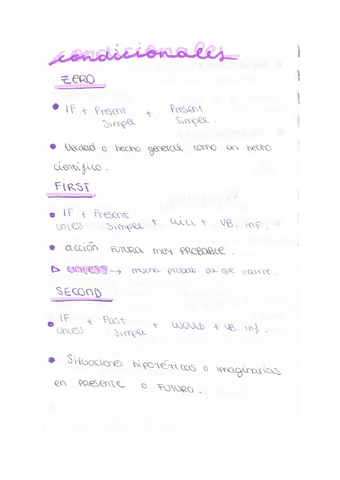 condicionales
ZERO
IF + Present + Present
Simple Simple.
Verdad o hecho general como un hecho
científico.
FIRST
IF + Present + will + VB. inf.
unless Simple
acción FUTURA MUY PROBABLE.
UNLESS → mucha probab de que ocurre.
SECOND
IF + Past + WOULD + VB. inf.
unless Simple
Situaciones hipotéticas o imaginarias
en PRESENTE o FUTURO.